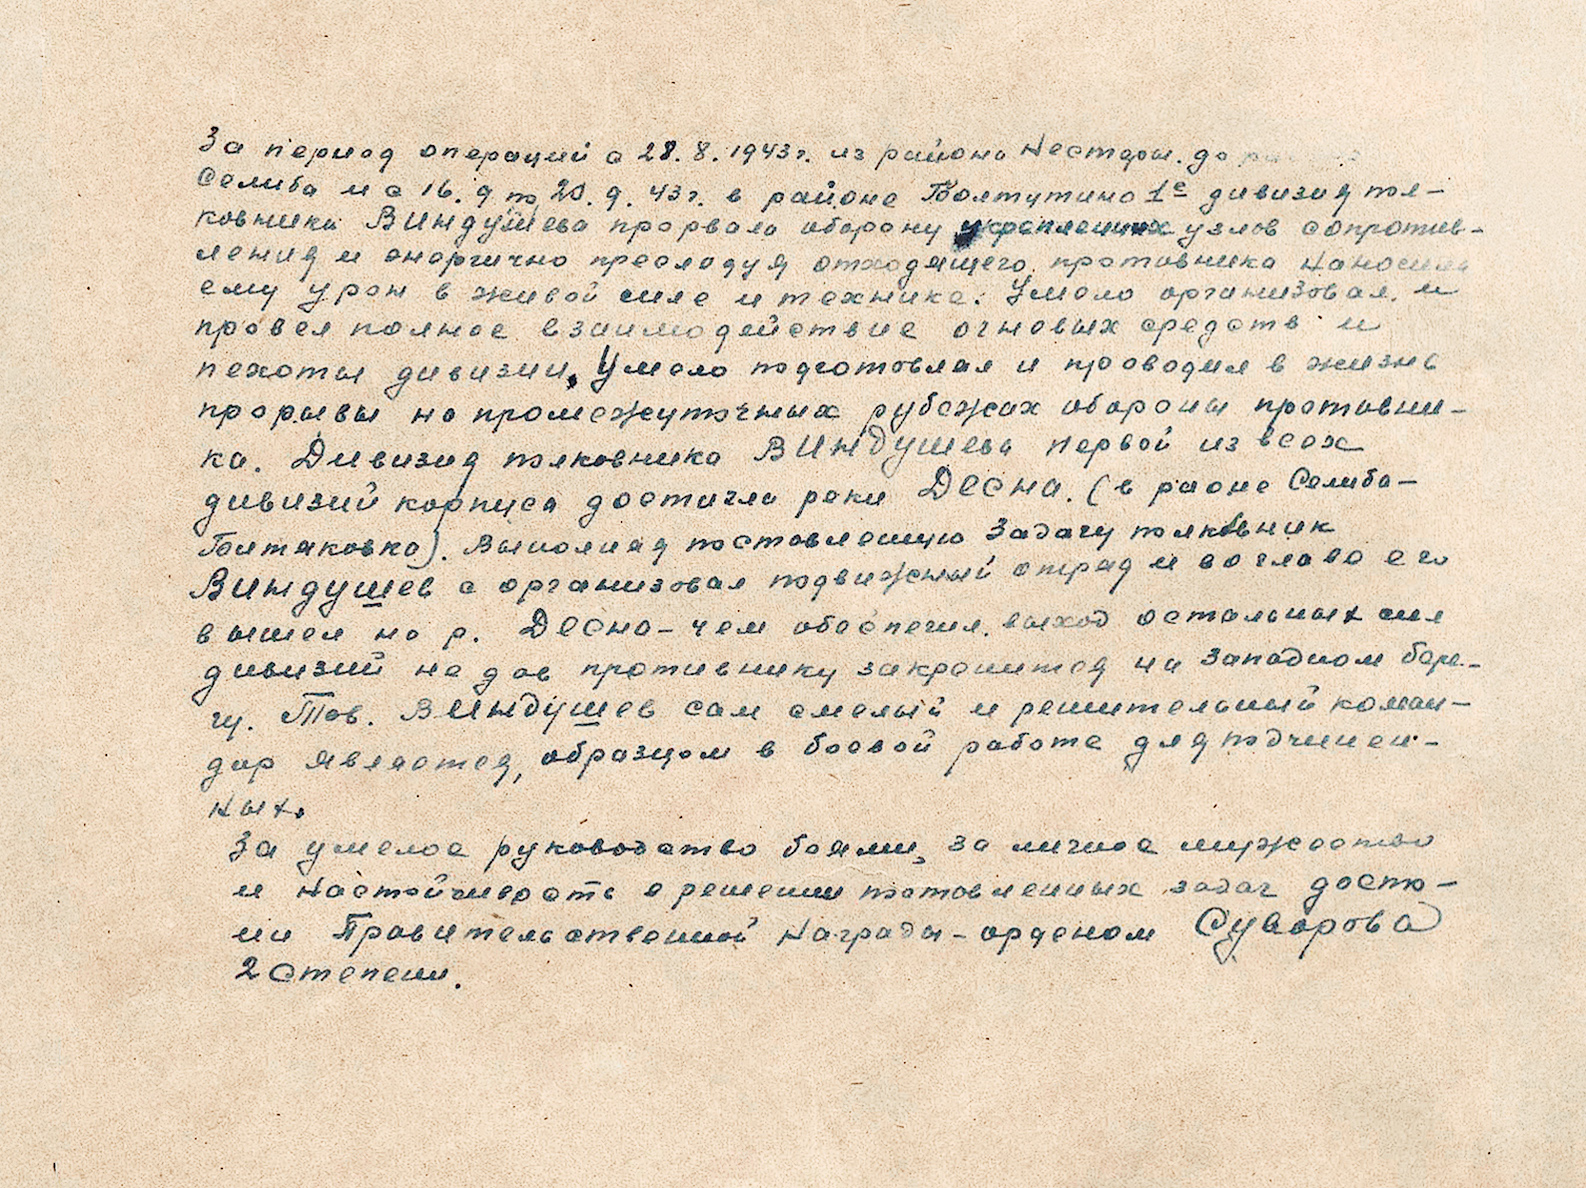 За период операций с 28.8.1943г. из района Нестеры. до
Селиба и с 16.9 по 20.9.43г. в районе Болтутино 1е дивизия пол-
ковника Виндушева прорвала оборону укрепленных узлов сопротив-
ления и энергично преследуя отходящего противника наносила
ему урон в живой силе и технике. Умело организовал. и
провел полное взаимодействие огновых средств и
пехоты дивизии. Умело подготовлял и проводил в жизнь
прорывы на промежуточных рубежах обороны противни-
ка. Дивизия полковника Виндушева первой из всех
дивизий корпуса достигла реки Десна. (в раоне Селиба-
Болтаковка). Выполняя поставленную задачу полковник
Виндушев с организовал подвижный отряд и во главе его
вышел на р. Десна-чем обеспечил. выход остальных сил
дивизий не дав противнику закрепится на западном бере-
гу. Тов. Виндушев сам смелый и решительный коман-
дир является, образцом в боевой работе для подчинен-
ных.
За умелое руководство боями, за личное мужество
и настойчивость в решении поставленных задач досто-
ин Правительственной Награды-орденом Суворова
2 степени.